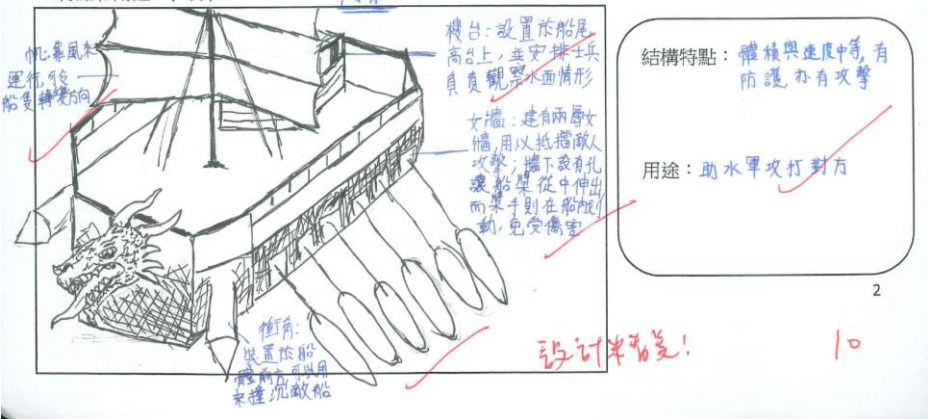 帆:靠風來
運行,可令
船隻轉變方向
機台:設置於船尾
高台上,並安排士兵
負責觀察水面情形
女牆:建有兩層女
牆,用以抵擋敵人
攻擊;牆下設有孔
讓船槳從中伸出
而槳手則在船內划
動,免受傷害
衝角:
裝置於船
體前方,可以用
來撞沉敵船
結構特點:體積與速度中等,有
防護,亦有攻擊
用途:助水軍攻打對方
2
設計精美!
10